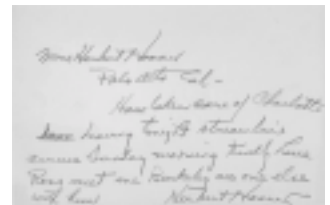 Mrs Herbert Hoover
Palo Alto Cal -
Have taken care of Charlotte
leaving tonight streamliner
arrive Sunday morning
Perry meet me Berkeley no one else
with him Herbert Hoover